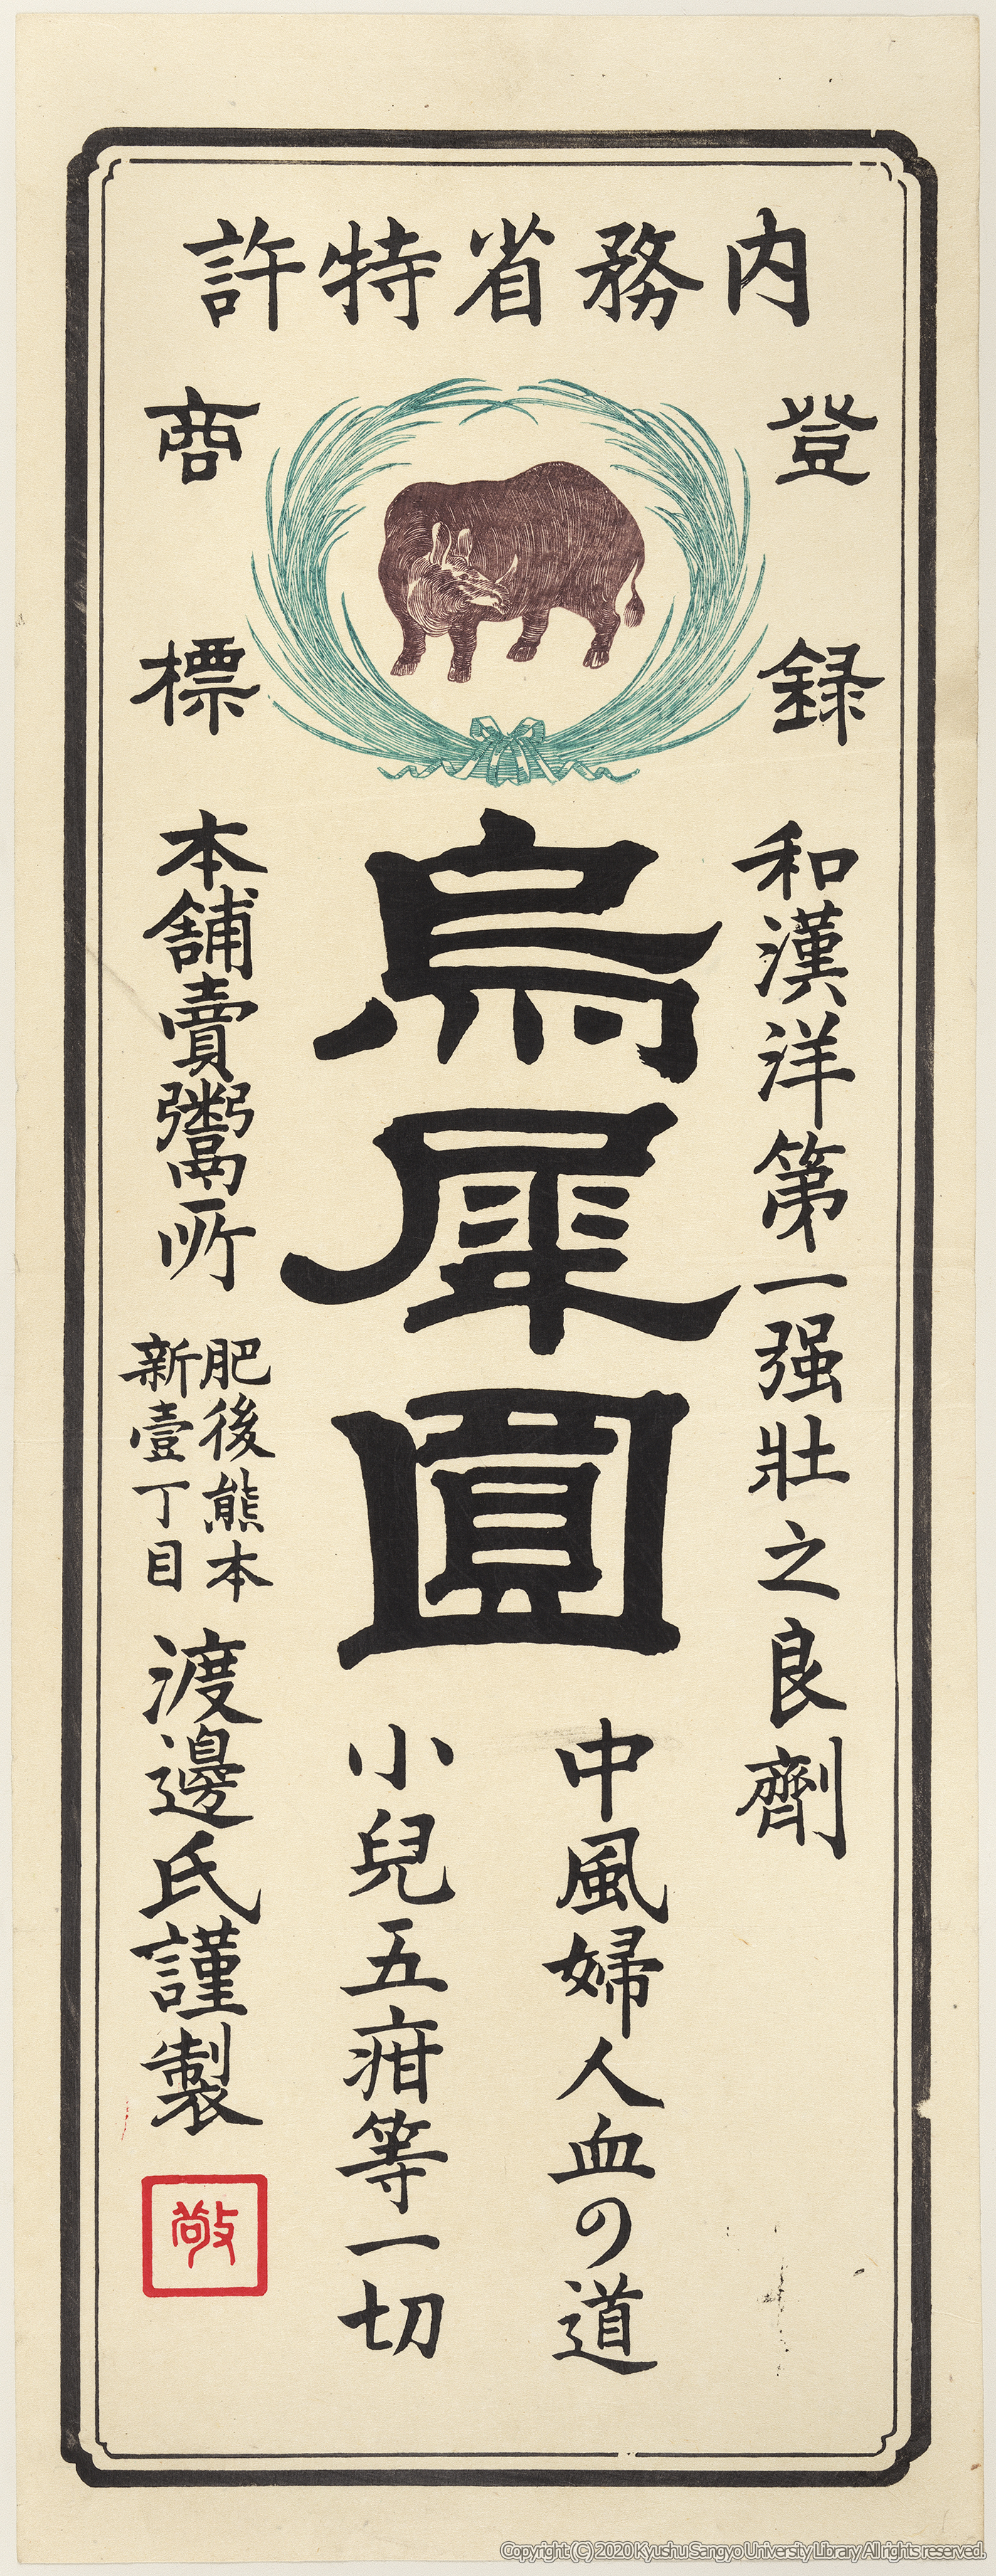 内務省特許
登録
商標
和漢洋第一强壯之良劑
烏犀圓
中風婦人血の道
小兒五疳等一切
本舖賣鬻所
肥後熊本
新壹丁目
渡邊氏謹製
敬
Copyright (C) 2020 Kyushu Sangyo University Library All rights reserved.